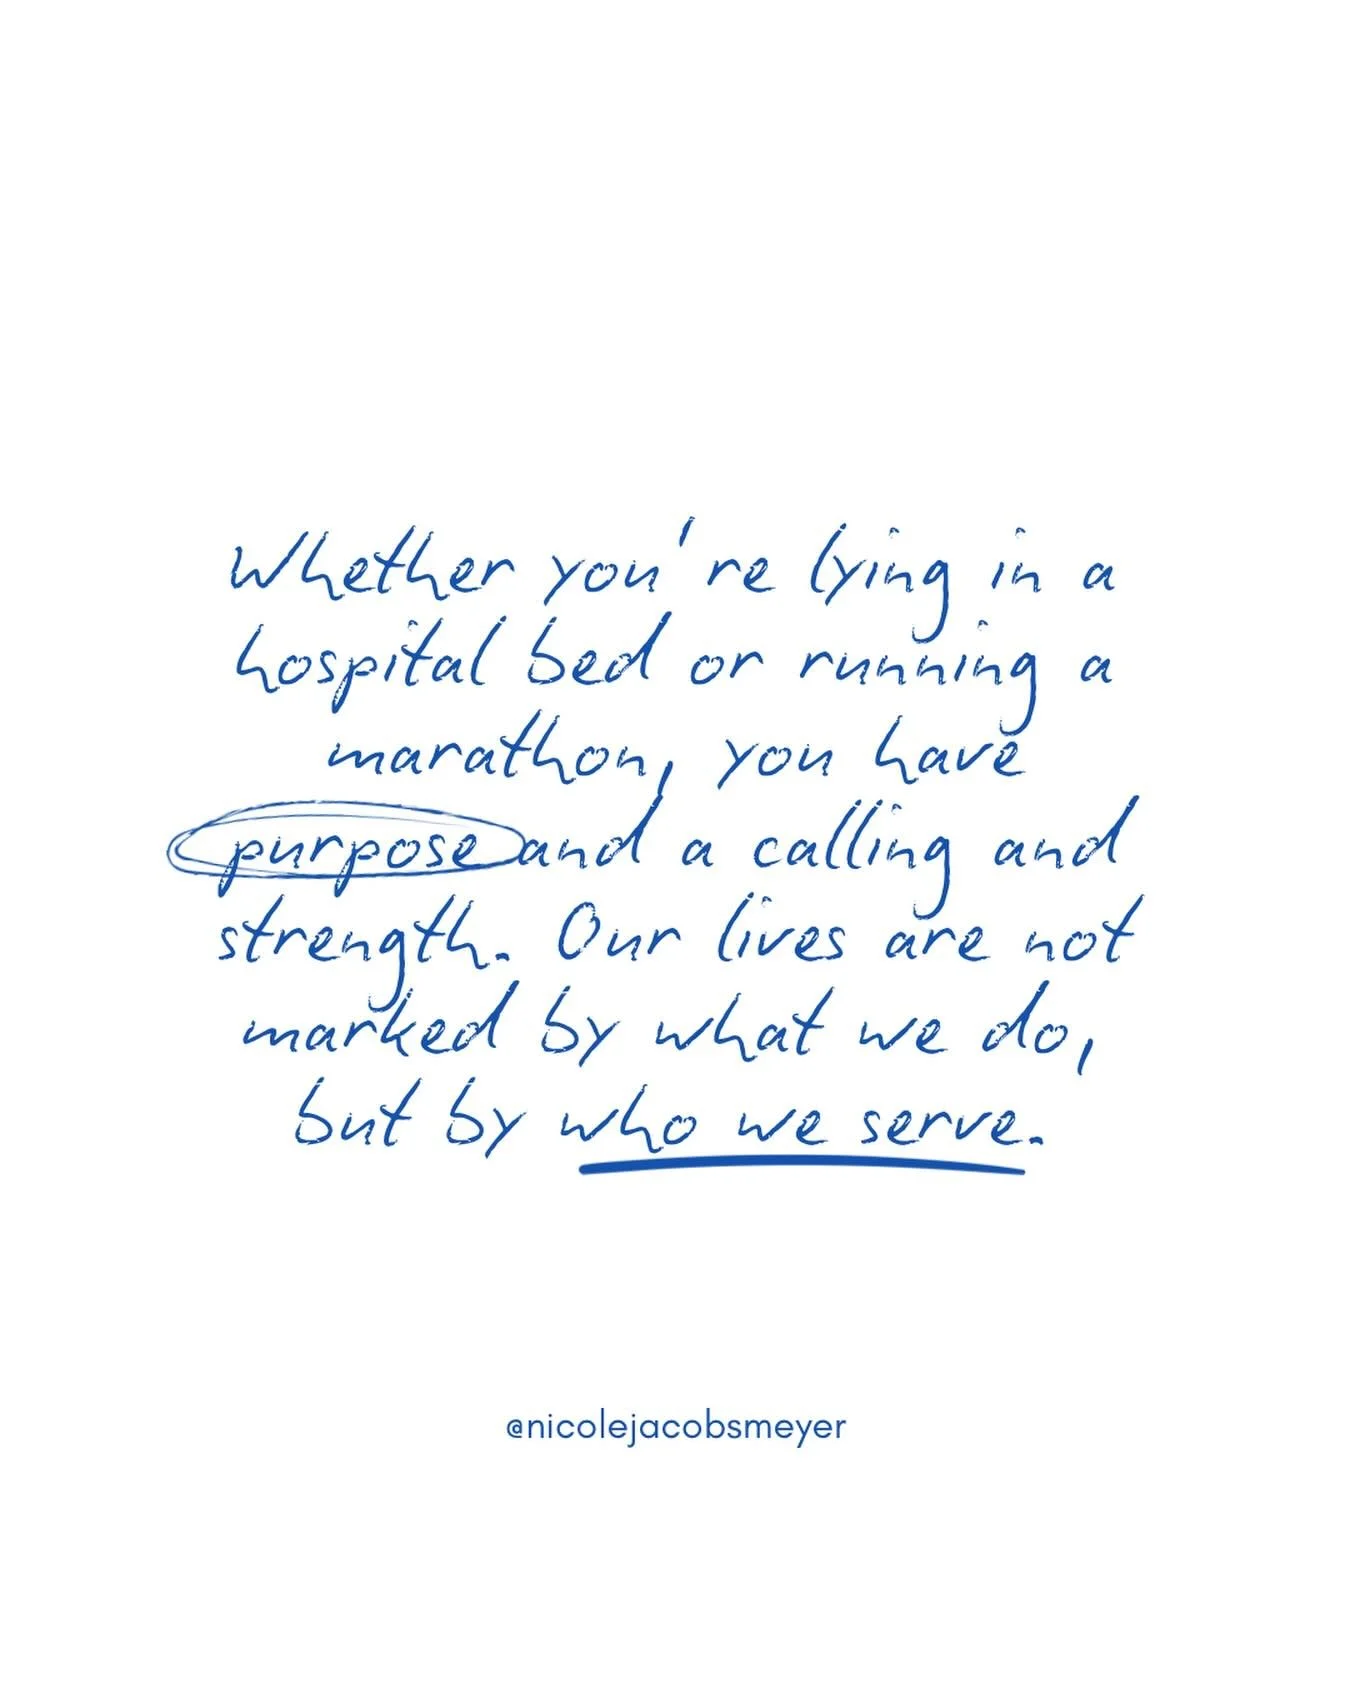 Whether you're lying in a
hospital bed or running a
marathon, you have
purpose and a calling and
strength. Our lives are not
marked by what we do,
but by who we serve.
@nicolejacobsmeyer